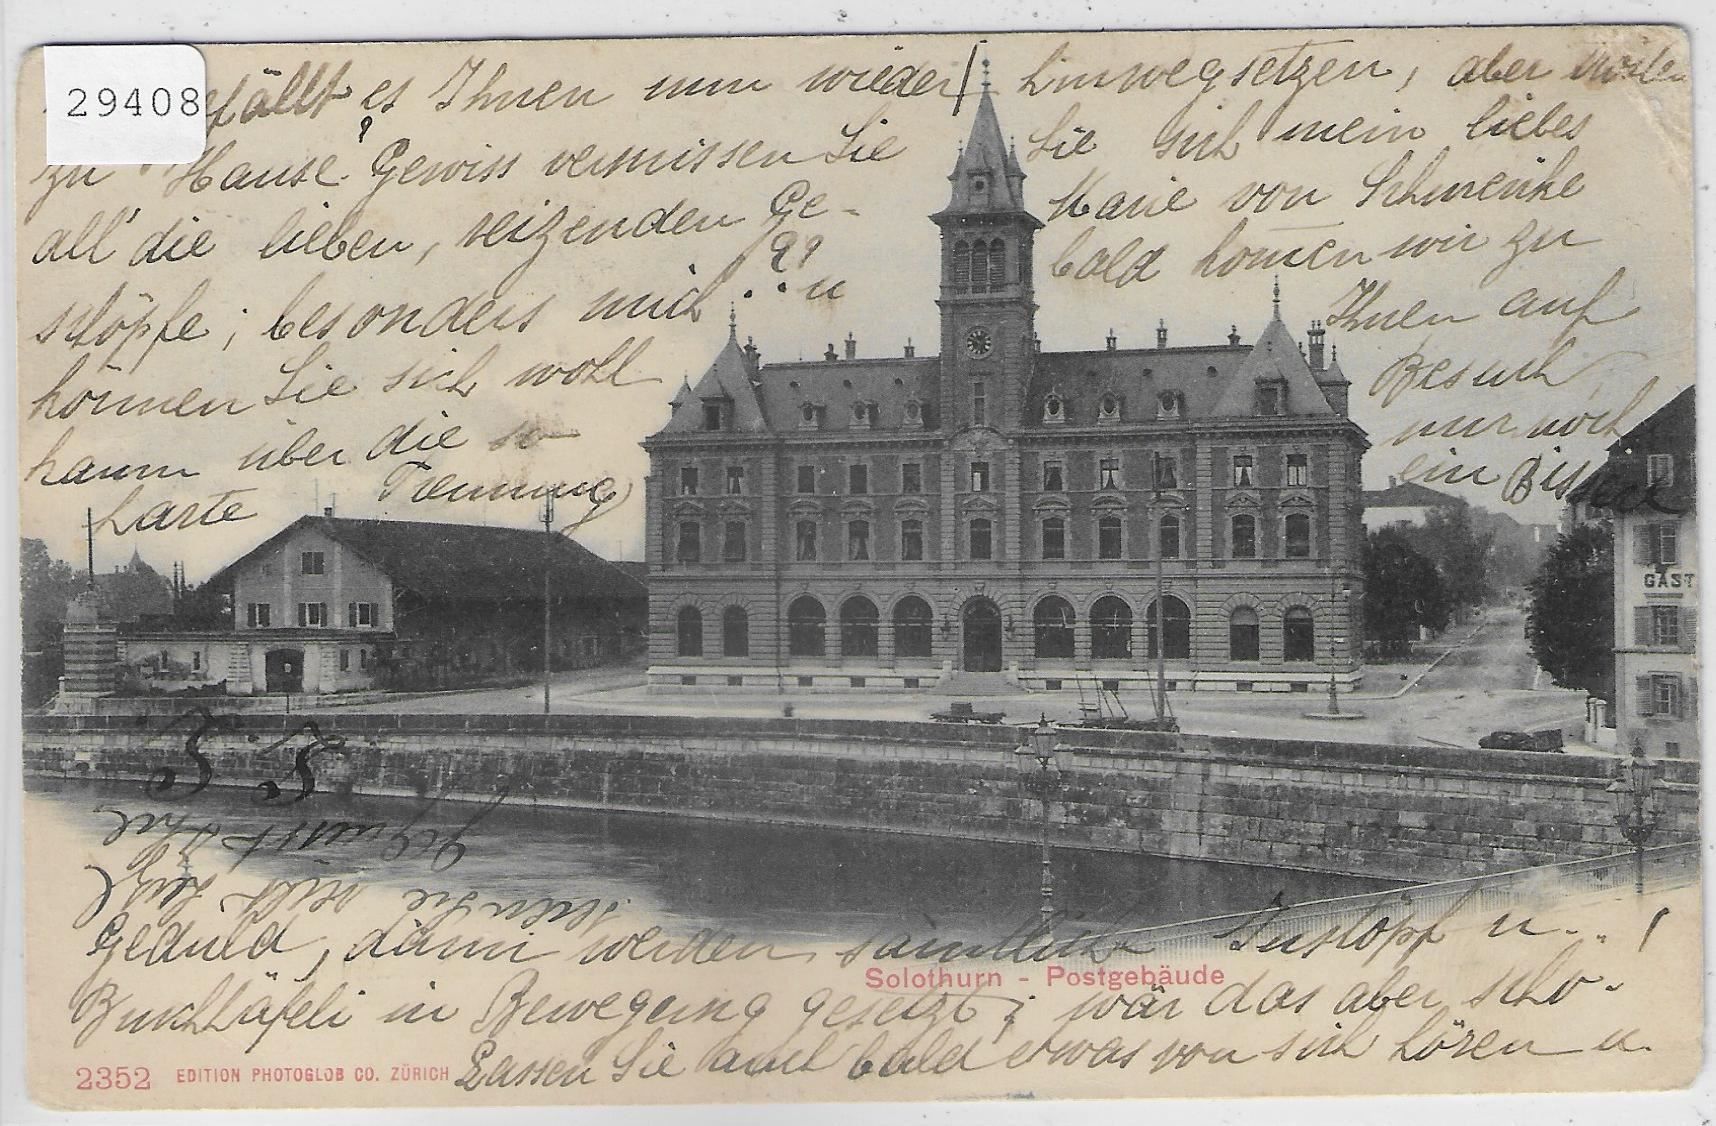 29408
gefällt es Ihnen nun wieder
zu Hause? Gewiss vermissen Sie
all' die lieben, reizenden Ge-
schöpfe; besonders mich . . . u
können Sie sich wohl
kaum über die so
harte Trennung
hinwegsetzen, aber trösten
Sie sich mein liebes
Marie von
bald komen wir zu
Ihnen auf
Besuch
nur noch
ein Bisschen
GAST
Geduld, dann werden sämtliche u. . . !
in Bewegung gesetzt; wär das aber scho-
Lassen Sie auch bald etwas von sich hören u.
seien Sie recht herzl
gegrüsst
Solothurn - Postgebäude
2352 EDITION PHOTOGLOB CO. ZÜRICH